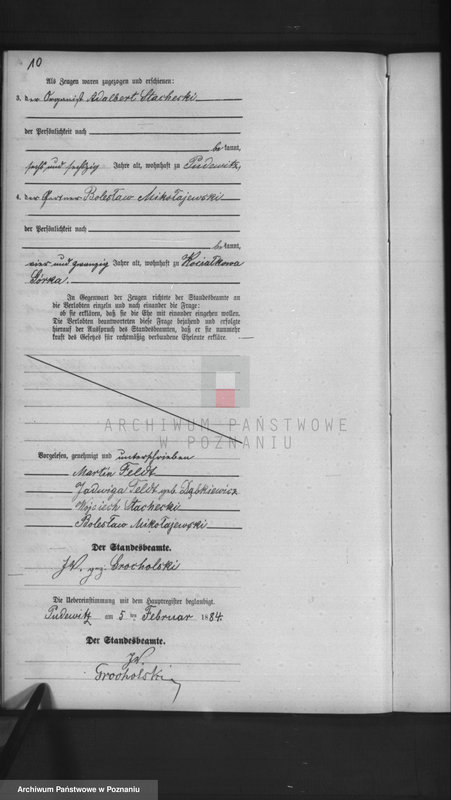 10
Als Zeugen waren zugezogen und erschienen:
3. der Organist Adalbert Stachecki
der Persönlichkeit nach
be kannt,
sechs und sechszig Jahre alt, wohnhaft zu Pudewitz,
4. der Boleslaw Mikołajewski
der Persönlichkeit nach
be kannt,
vier und zwanzig Jahre alt, wohnhaft zu Kociałkowa
Górka.
In Gegenwart der Zeugen richtete der Standesbeamte an
die Verlobten einzeln und nach einander die Frage:
ob sie erklären, daß sie die Ehe mit einander eingehen wollen.
Die Verlobten beantworteten diese Frage bejahend und erfolgte
hierauf der Ausspruch des Standesbeamten, daß er sie nunmehr
kraft des Gesetzes für rechtmäßig verbundene Eheleute erkläre.
ARCHIWUM PAŃSTWOWE
W POZNANIU
Vorgelesen, genehmigt und unterschrieben
Martin Feldt
Jadwiga Feldt geb. Dąbkiewicz
Wojciech Stachecki
Bolesław Mikołajewski
Der Standesbeamte.
J.V. gez. Grocholski
Die Uebereinstimmung mit dem Hauptregister beglaubigt.
Pudewitz am 5 ten Februar 1884.
Der Standesbeamte.
J.V.
Grocholski
Archiwum Państwowe w Poznaniu